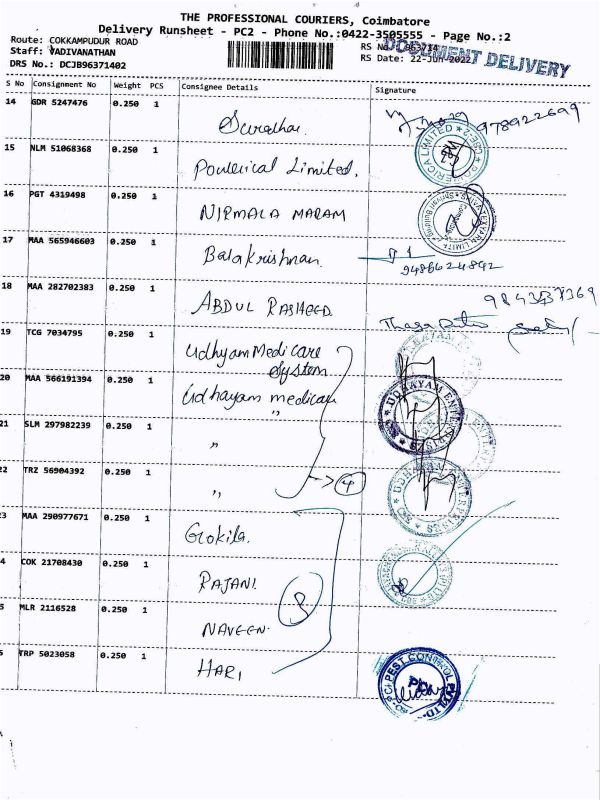 THE PROFESSIONAL COURIERS, Coimbatore
Delivery Runsheet - PC2 - Phone No.:0422-3505555 - Page No.:2
Route: COKKAMPUDUR ROAD
RS No.: 963714
Staff: VADIVANATHAN
RS Date: 22-Jun-2022
DOCUMENT DELIVERY
DRS No.: DCJB96371402
S No Consignment No Weight PCS Consignee Details Signature
14 GDR 5247476 0.250 1
15 NLM 51068368 0.250 1
Limited.
16 PGT 4319498 0.250 1
NIRMALA MARAM
17 MAA 565946603 0.250 1
Balakrishnan.
9486624842
18 MAA 282702383 0.250 1
ABDUL RASHEED
19 TCG 7034795 0.250 1
Udhyam Medicare
System
20 MAA 566191394 0.250 1
Udhayam medicare
"
UDHAYAM ENTERPRISES
21 SLM 297982239 0.250 1
"
22 TRZ 56904392 0.250 1
"
4
UDHAYAM ENTERPRISES
23 MAA 290977671 0.250 1
Gokila.
4 COK 21708430 0.250 1
RAJANI.
5 MLR 2116528 0.250 1
NAVEEN
TRP 5023058 0.250 1
HARI
PEST CONTROL PVT LTD